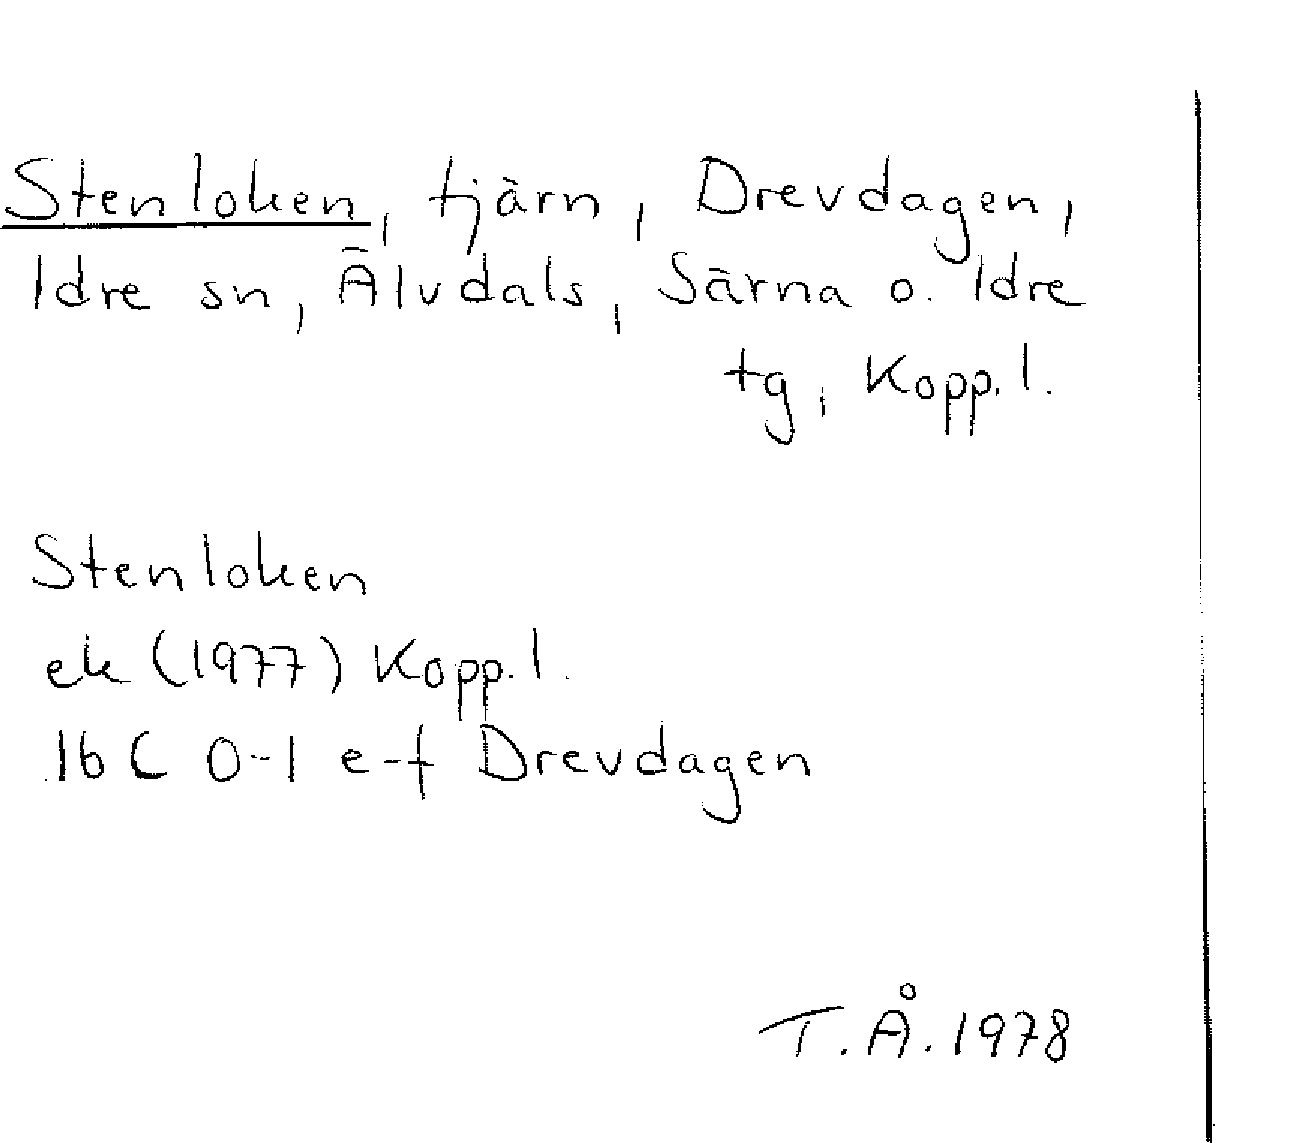 Stenloken, tjärn, Drevdagen,
Idre sn, Älvdals, Särna o. Idre
tg, Kopp. l.
Stenloken
ek (1977) Kopp. l.
16 C 0-1 e-f Drevdagen
T. Å. 1978